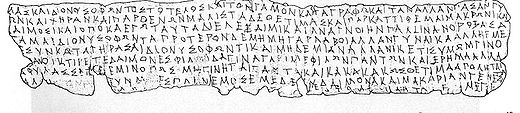 ΜΑΣΚΑΙΔΙΟΝΥΣΟΦΩΝΤΟΣΤΟΤΕΛΟΣΚΑΙΤΟΝΓΑΜΟΝΚΑΤΑΓΡΑΦΩΚΑΙΤΑΝΑΛΛΑΝΠΑΣΑΝΓΥ
ΩΝΚΑΙΧΗΡΑΝΚΑΙΠΑΡΘΕΝΩΝΜΑΛΙΣΤΑΔΕΘΕΤΙΜΑΣΚΑΙΠΑΡΚΑΤΤΙΘΕΜΑΙΜΑΚΡΩΝΙΚΑΙ
ΔΑΙΜΟΣΙΚΑΙΟΠΟΚΑΕΓΩΤΑΥΤΑΔΙΕΛΕΞΑΙΜΙΚΑΙΑΝΑΓΝΟΙΗΝΠΑΛΕΙΝΑΝΟΡΟΞΑΣΑ
ΓΑΜΑΙΔΙΟΝΥΣΟΦΩΝΤΑΠΡΟΤΕΡΟΝΔΕΜΗΜΗΓΑΡΛΑΒΟΙΑΛΛΑΝΓΥΝΑΙΚΑΑΛΛΗΕΜΕ
ΕΣΥΝΚΑΤΑΓΗΡΑΣΑΙΔΙΟΝΥΣΟΦΩΝΤΙΚΑΙΜΗΔΕΜΙΑΝΑΛΛΑΝΙΚΕΤΙΣΥΜΩΓΙΝΟ
ΑΝΟΙΚΤΙΡΕΤΕΔΑΙΜΟΝΕΣΦΙΛΟΙΔΑΓΙΝΑΓΑΡΙΜΕΦΙΛΩΝΠΑΝΤΩΝΚΑΙΕΡΗΜΑΑΛΛΑ
ΦΥΛΑΣΣΕΤΕΕΜΙΝΟΠΩΣΜΗΓΙΝΗΤΑΙΤΑΥΤΑΚΑΙΚΑΚΑΚΑΚΩΣΘΕΤΙΜΑΑΠΟΛΗΤΑΙ
ΕΣΠΛΗΝΕΜΟΣΕΜΕΔΕΕΥΔΑΙΜΟΝΑΚΑΙΜΑΚΑΡΙΑΝΓΕΝΕΣ